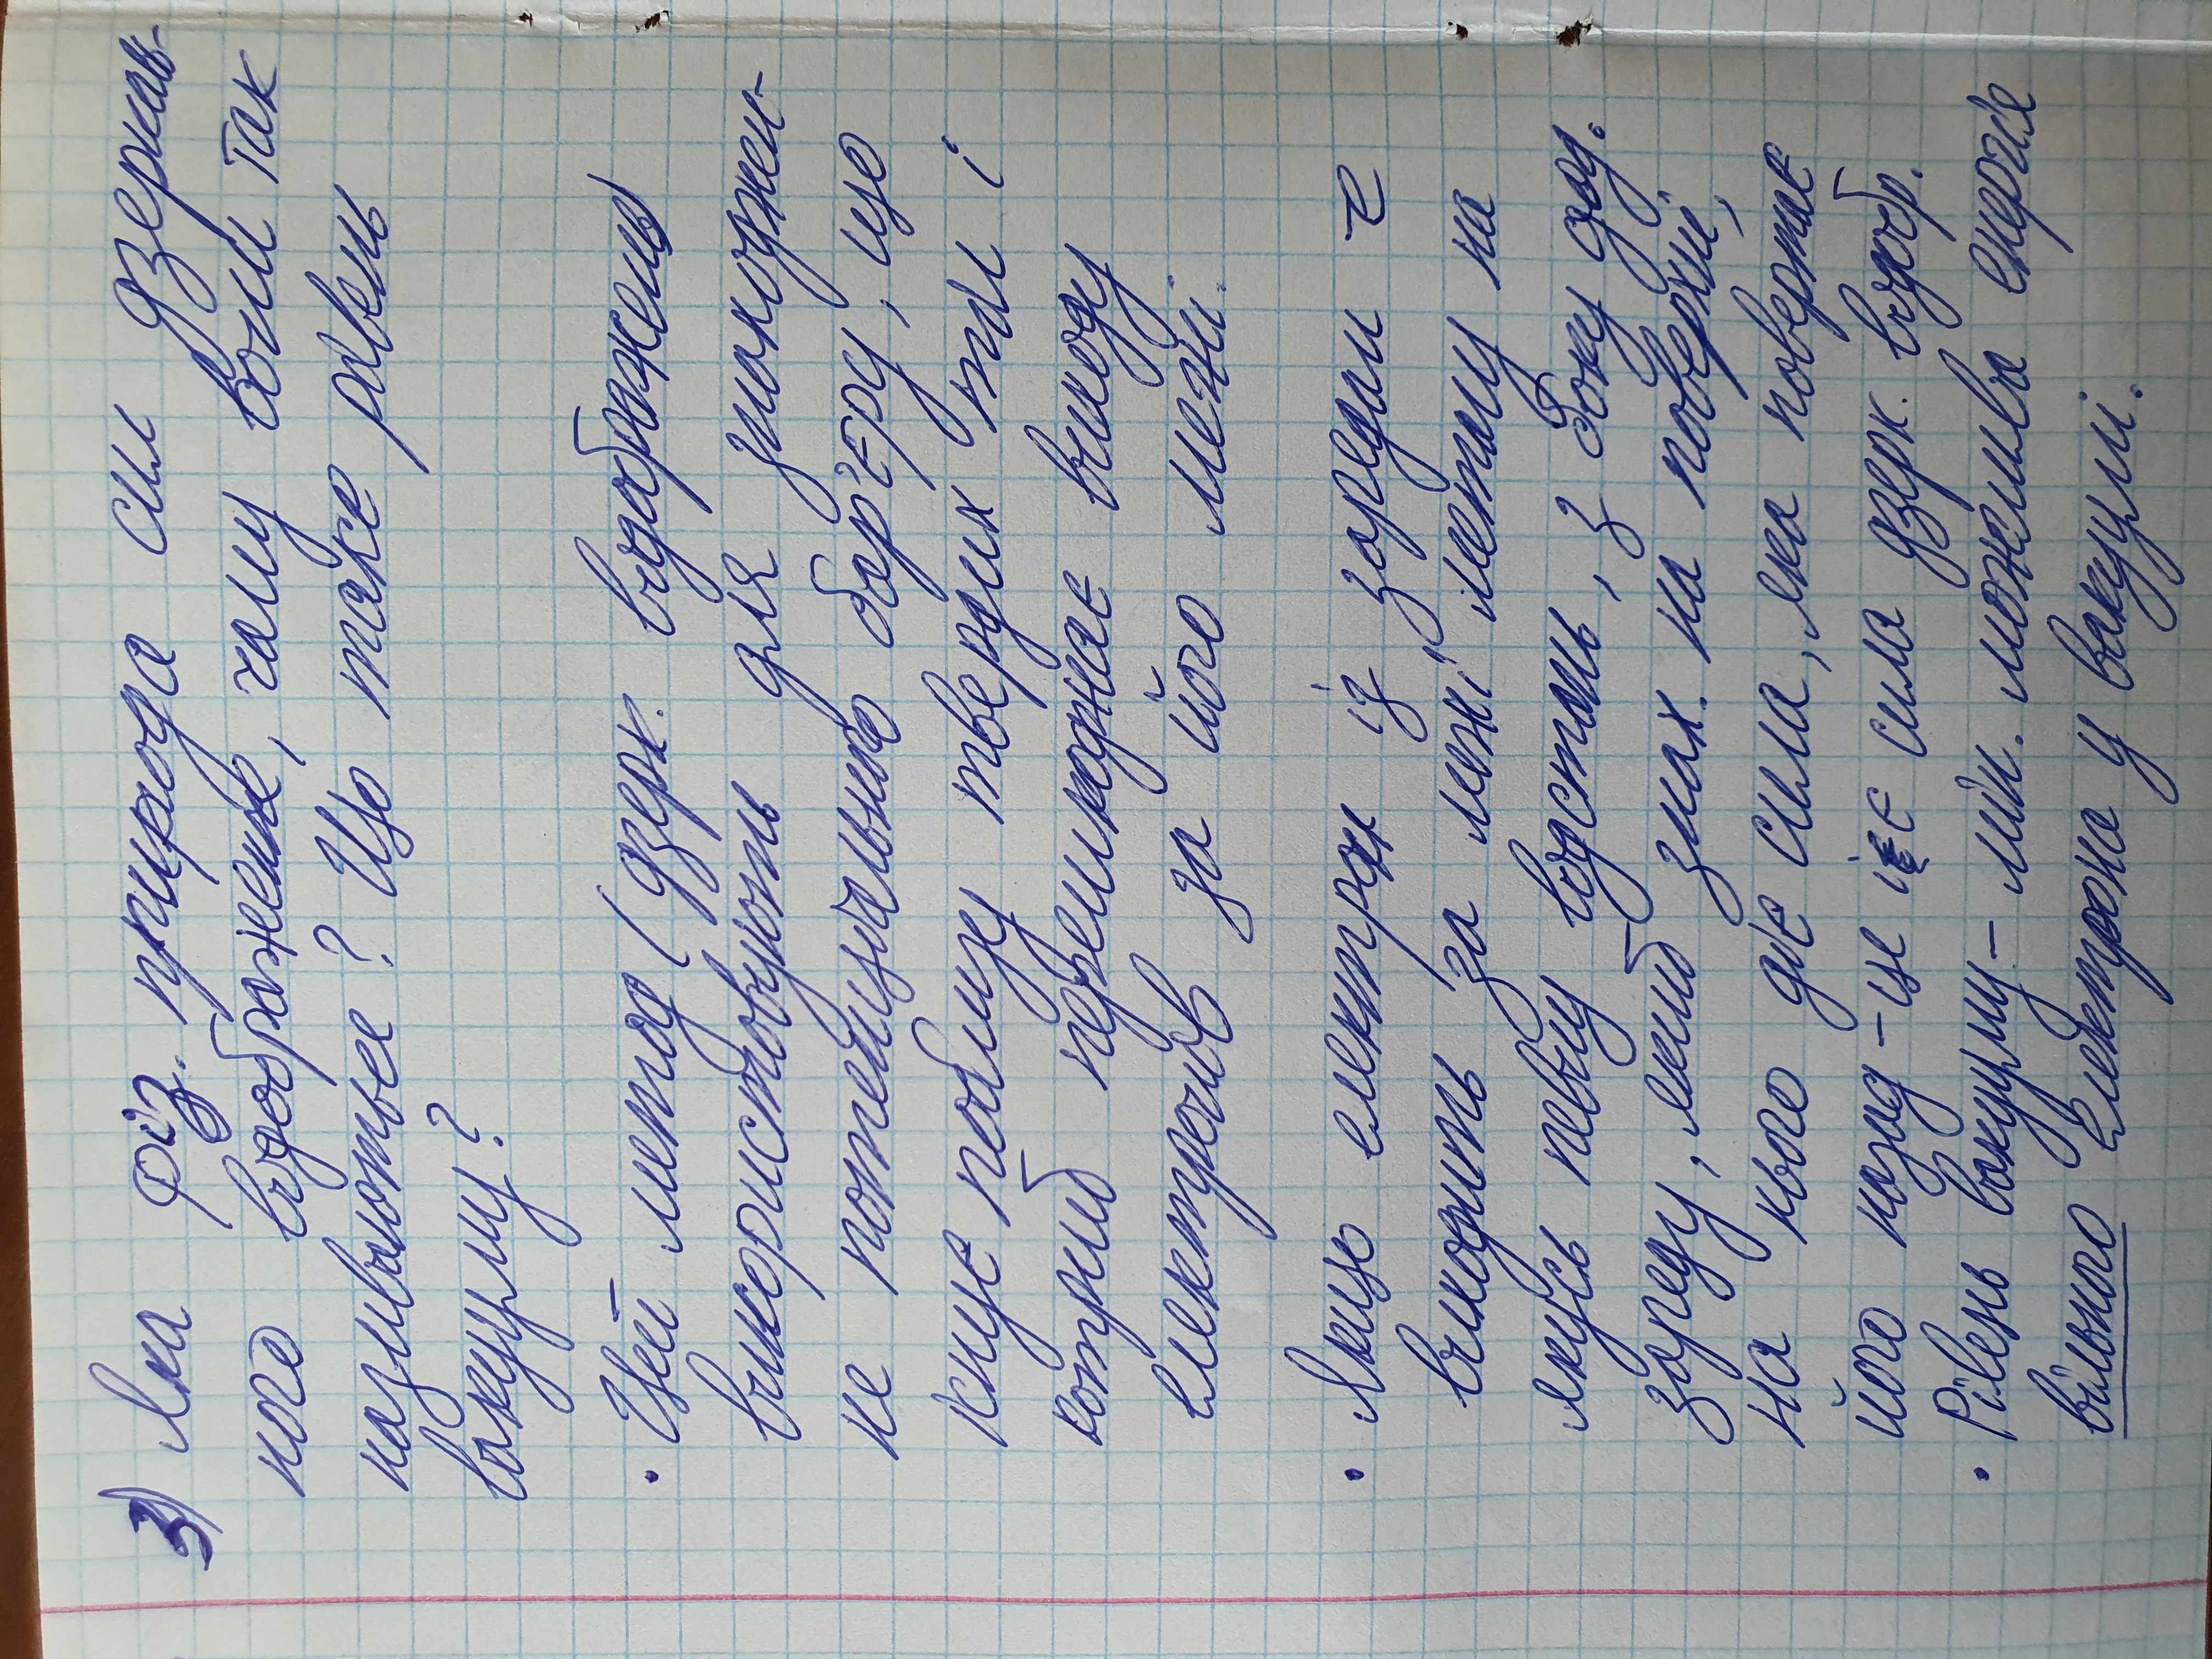 3) Яка фіз. природа сил дзеркаль-
ного відображення, чому вони так
називаються? Що таке рівень
вакууму?
• Цей метод (дзерк. відображень)
використовують для знаходжен-
не потенціального бар'єру, що
існує поблизу твердих тіл і
котрий подзвиходжає виходу
електронів за його межі.
• Якщо електрон із зарядом e
виходить за межі металу на
якусь певну відстань, з боку дод.
заряду, який знах. на поверхні,
на нього діє сила, яка повертає
його назад - це і є сила дзерк. відобр.
• Рівень вакууму - мін. можлива енергія
вільного електрона у вакуумі.